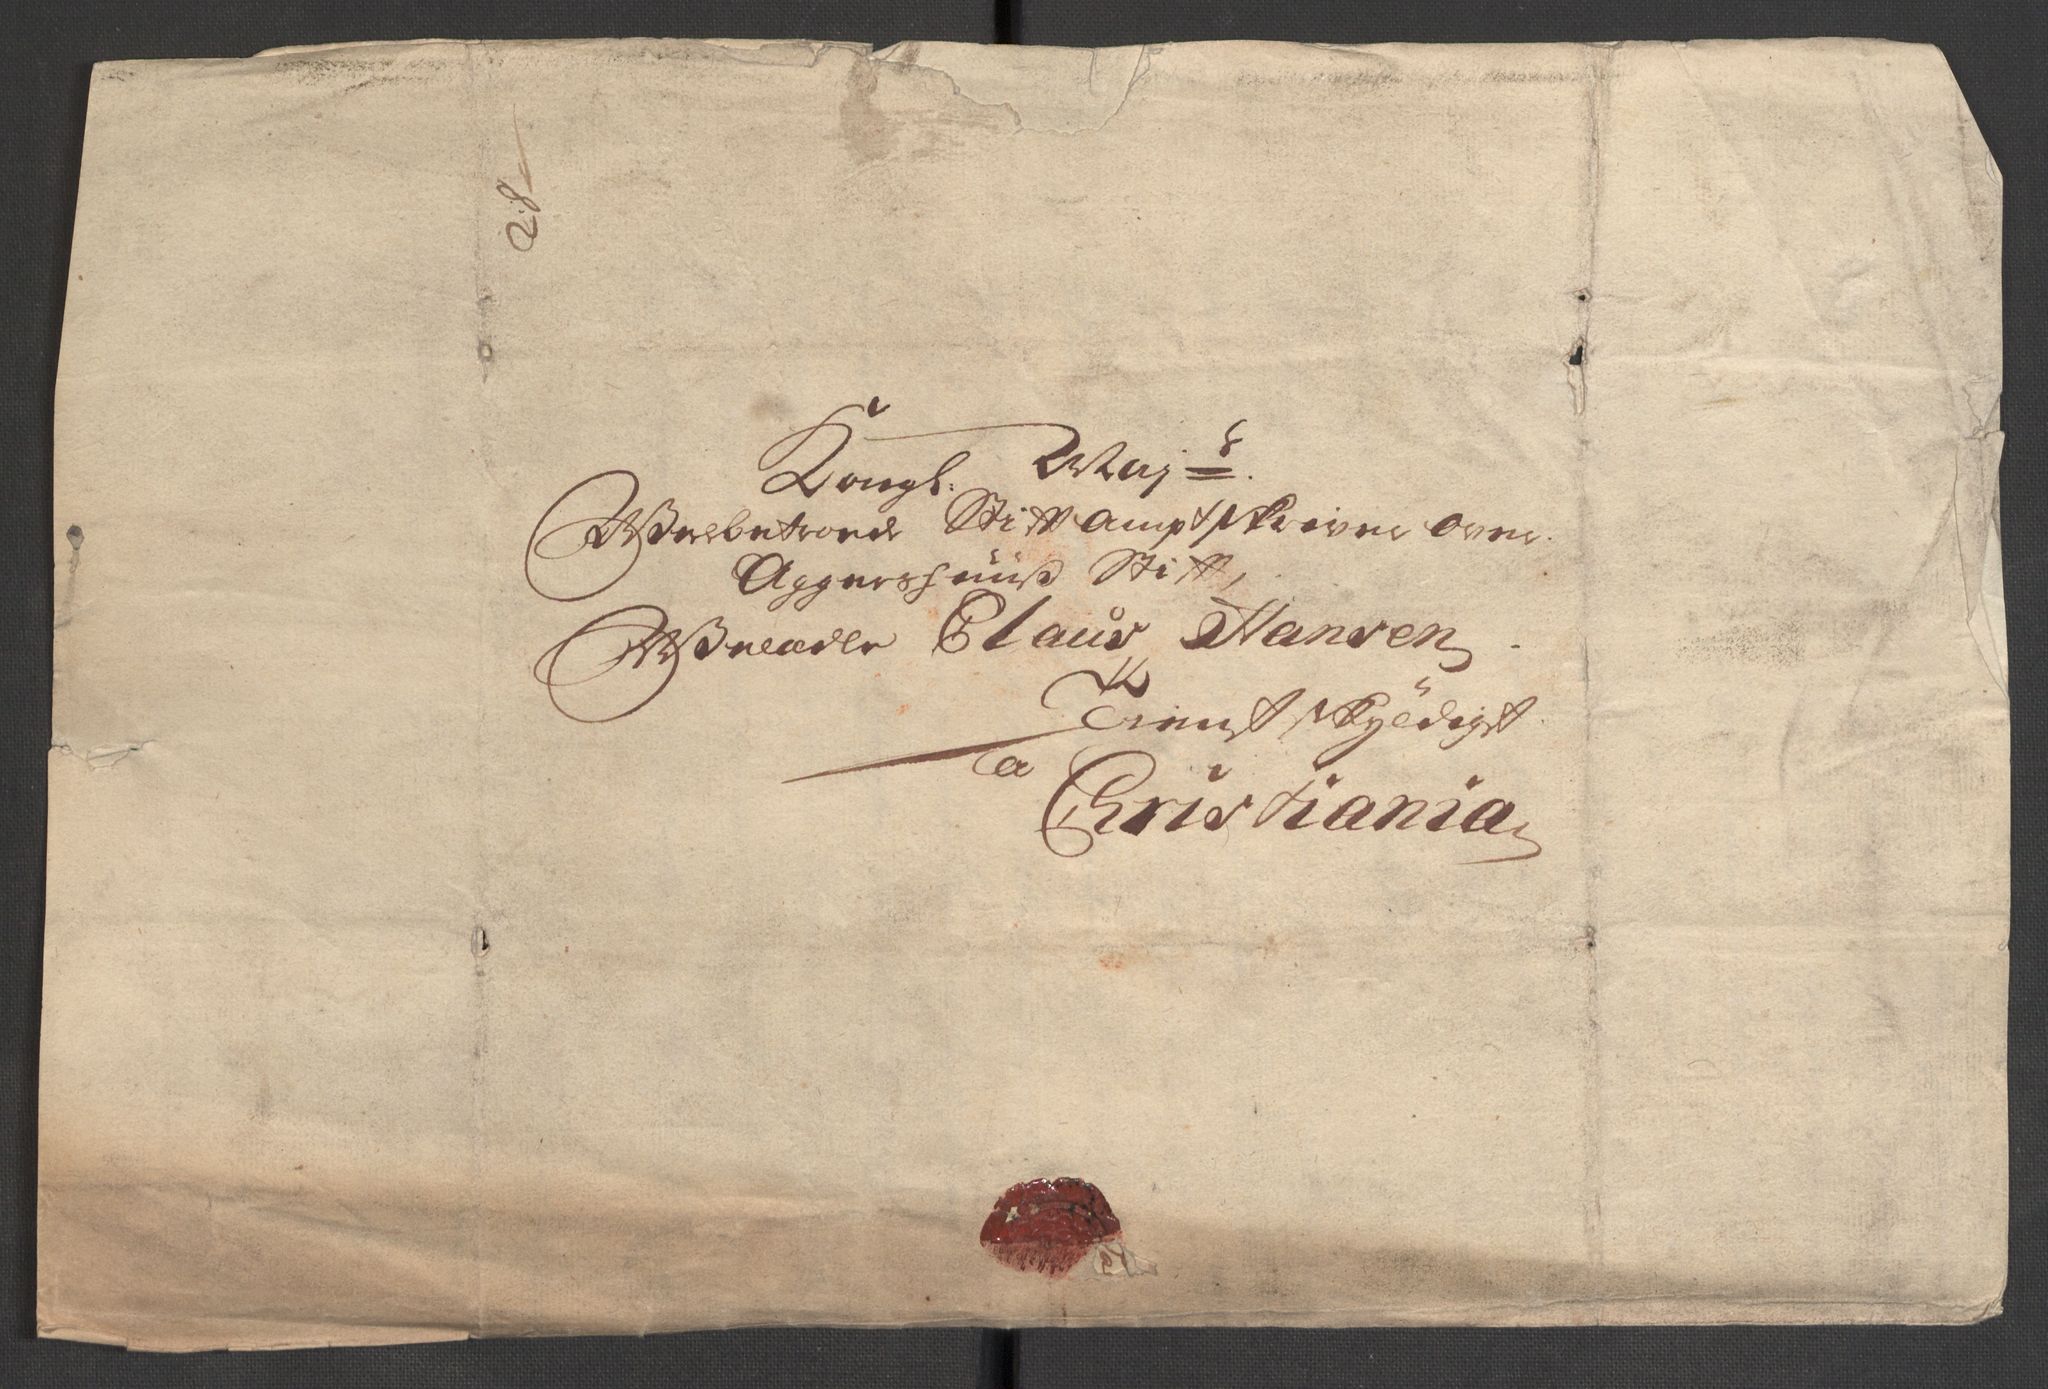 28
Kongl. Maj:s
Welbetroede Stiftamptskriver over
Aggershuuß Stift,
Welædle Claus Hansen
Tienstskyldigst
a
Christiania